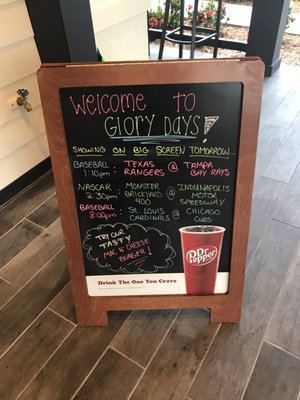 WELCOME TO
GLORY DAYS
SHOWING ON BIG SCREEN TOMORROW...
BASEBALL: TEXAS RANGERS @ TAMPA BAY RAYS
1:10pm
NASCAR: MONSTER BRICKYARD 400 @ INDIANAPOLIS MOTOR SPEEDWAY
2:30pm
BASEBALL ST. LOUIS CARDINALS @ CHICAGO CUBS
8:00pm
TRY OUR
TASTY
MAC N' CHEESE
BURGER!
Dr Pepper
Drink The One You Crave